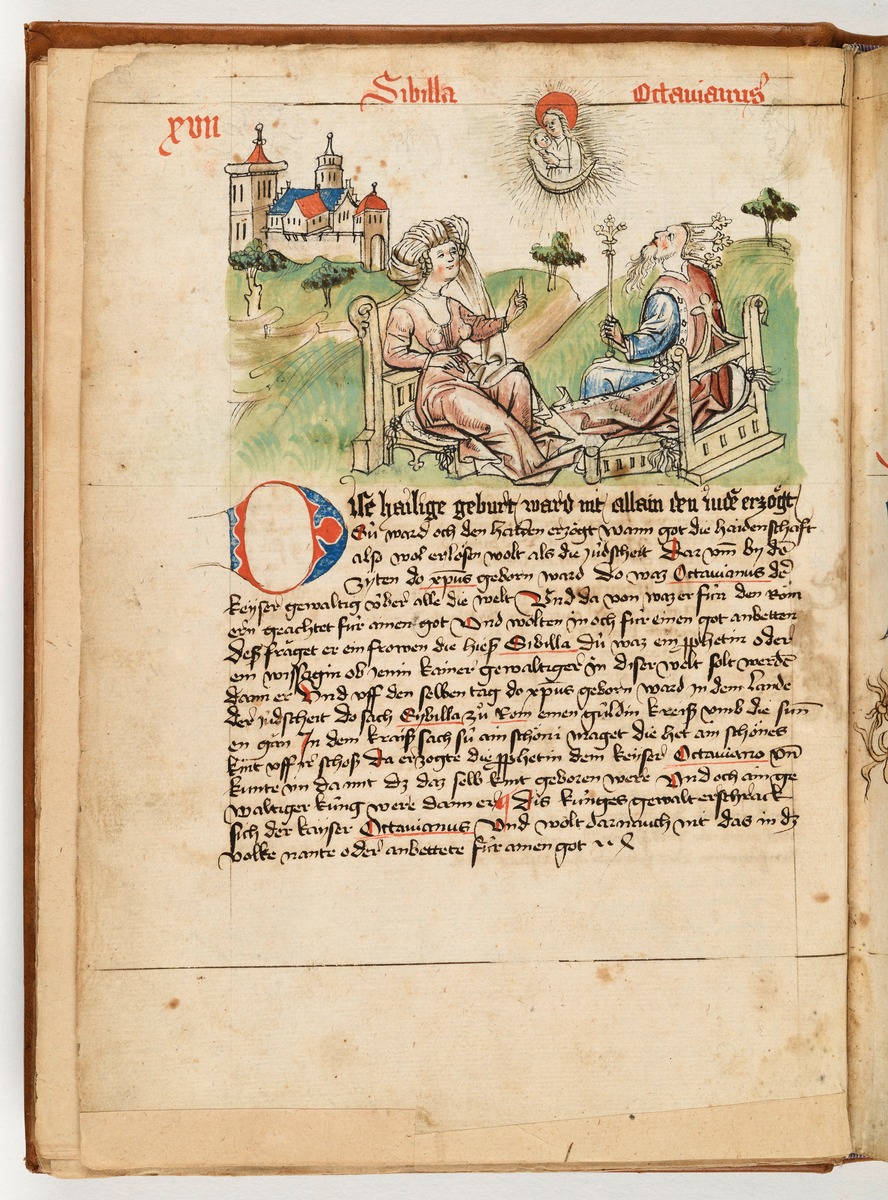 Sibilla Octavianus
xvii
Dise hailige geburt ward nit allain den iudē erzögt
Sū ward och den haiden erzögt wann got die haidenschaft
also wol erlösen wolt als die jüdscheit Dar vm̄ by dē
zyten do xp̄us geborn ward do waz Octavianus dē
keyser gewaltig über alle die welt Und da von waz er für den Röm
ern geachtet für ainen got Vnd wolten in och für einen got anbetten
Deß fraget er ein frowen die hieß Sibilla Dü waz ein p̄phetin oder
ein wissagin ob jenin kainer gewaltiger in diser welt solt werdē
dann er Vnd vff den selben tag do xp̄us geborn ward in dem lande
der jüdscheit do sach Sybilla zü Rom einen güldin kreiß vmb die sun̄
en gān In dem kraiß sach sü ain schöni maget die het ain schönes
kint vff jr schoß Da erzogte die p̄phetin dem keyser Octaviano vn̄
kunte im da mit dz daz selb kint geboren were Vnd och ain ge
waltiger küng were dann er Dis künges gewalt erschrack
sich der kayser Octavianus Vnd wolt darnauch nit das in dz
volke nante oder anbettete für ainen got